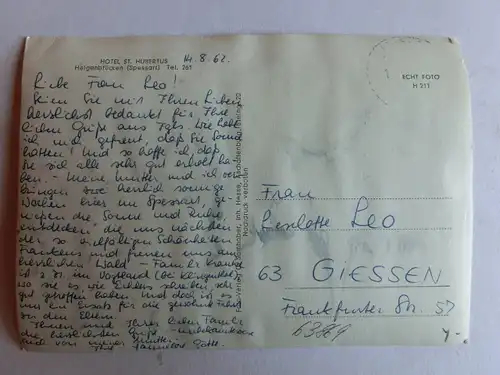 HOTEL ST. HUBERTUS
Heigenbrücken (Spessart) Tel. 261
14.8.62.
ECHT FOTO
H 211
Liebe Frau Leo!
Seien Sie mit Ihren Lieben
herzlichst bedankt für Ihre
lieben Grüße aus
ich mich gefreut, daß Sie Sonne
hatten! Und so hoffe ich, daß
Sie sich alle sehr gut erholt ha-
ben. - Meine Mutter und ich ver-
bringen zwei herrlich sonnige
Wochen hier im Spessart, ge-
nießen die Sonne und Ruhe,
"entdecken" die uns nächsten
der so vielfältigen Schönheiten
Frankens und freuen uns am
herrlichen Wald. - Familie
ist z. Zt. im Vogtland
wo sie es, wie Eltern schreiben, sehr
gut getroffen haben. Und doch ist es
nur ein Ersatz für die
zu den Eltern.
Ihnen und Ihrer lieben Familie
die herzlichsten Grüße
auch von meiner Mutter
Ihre
Nachdruck verboten
Frau
Liselotte Leo
63 GIESSEN
Frankfurter Str. 57
63869
4,-